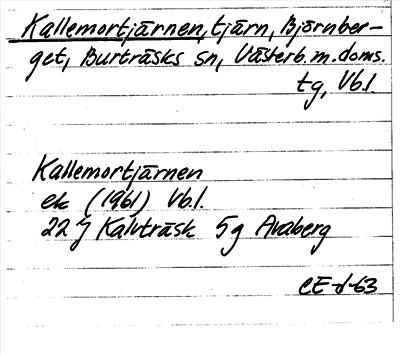 Kallemortjärnen, tjärn, Björnber-
get, Burträsks sn, Västerb. m. doms.
tg, Vb.l.
Kallemortjärnen
ek (1961) Vb.l.
22 J Kalvträsk 5g Avaberg
CE-d-63